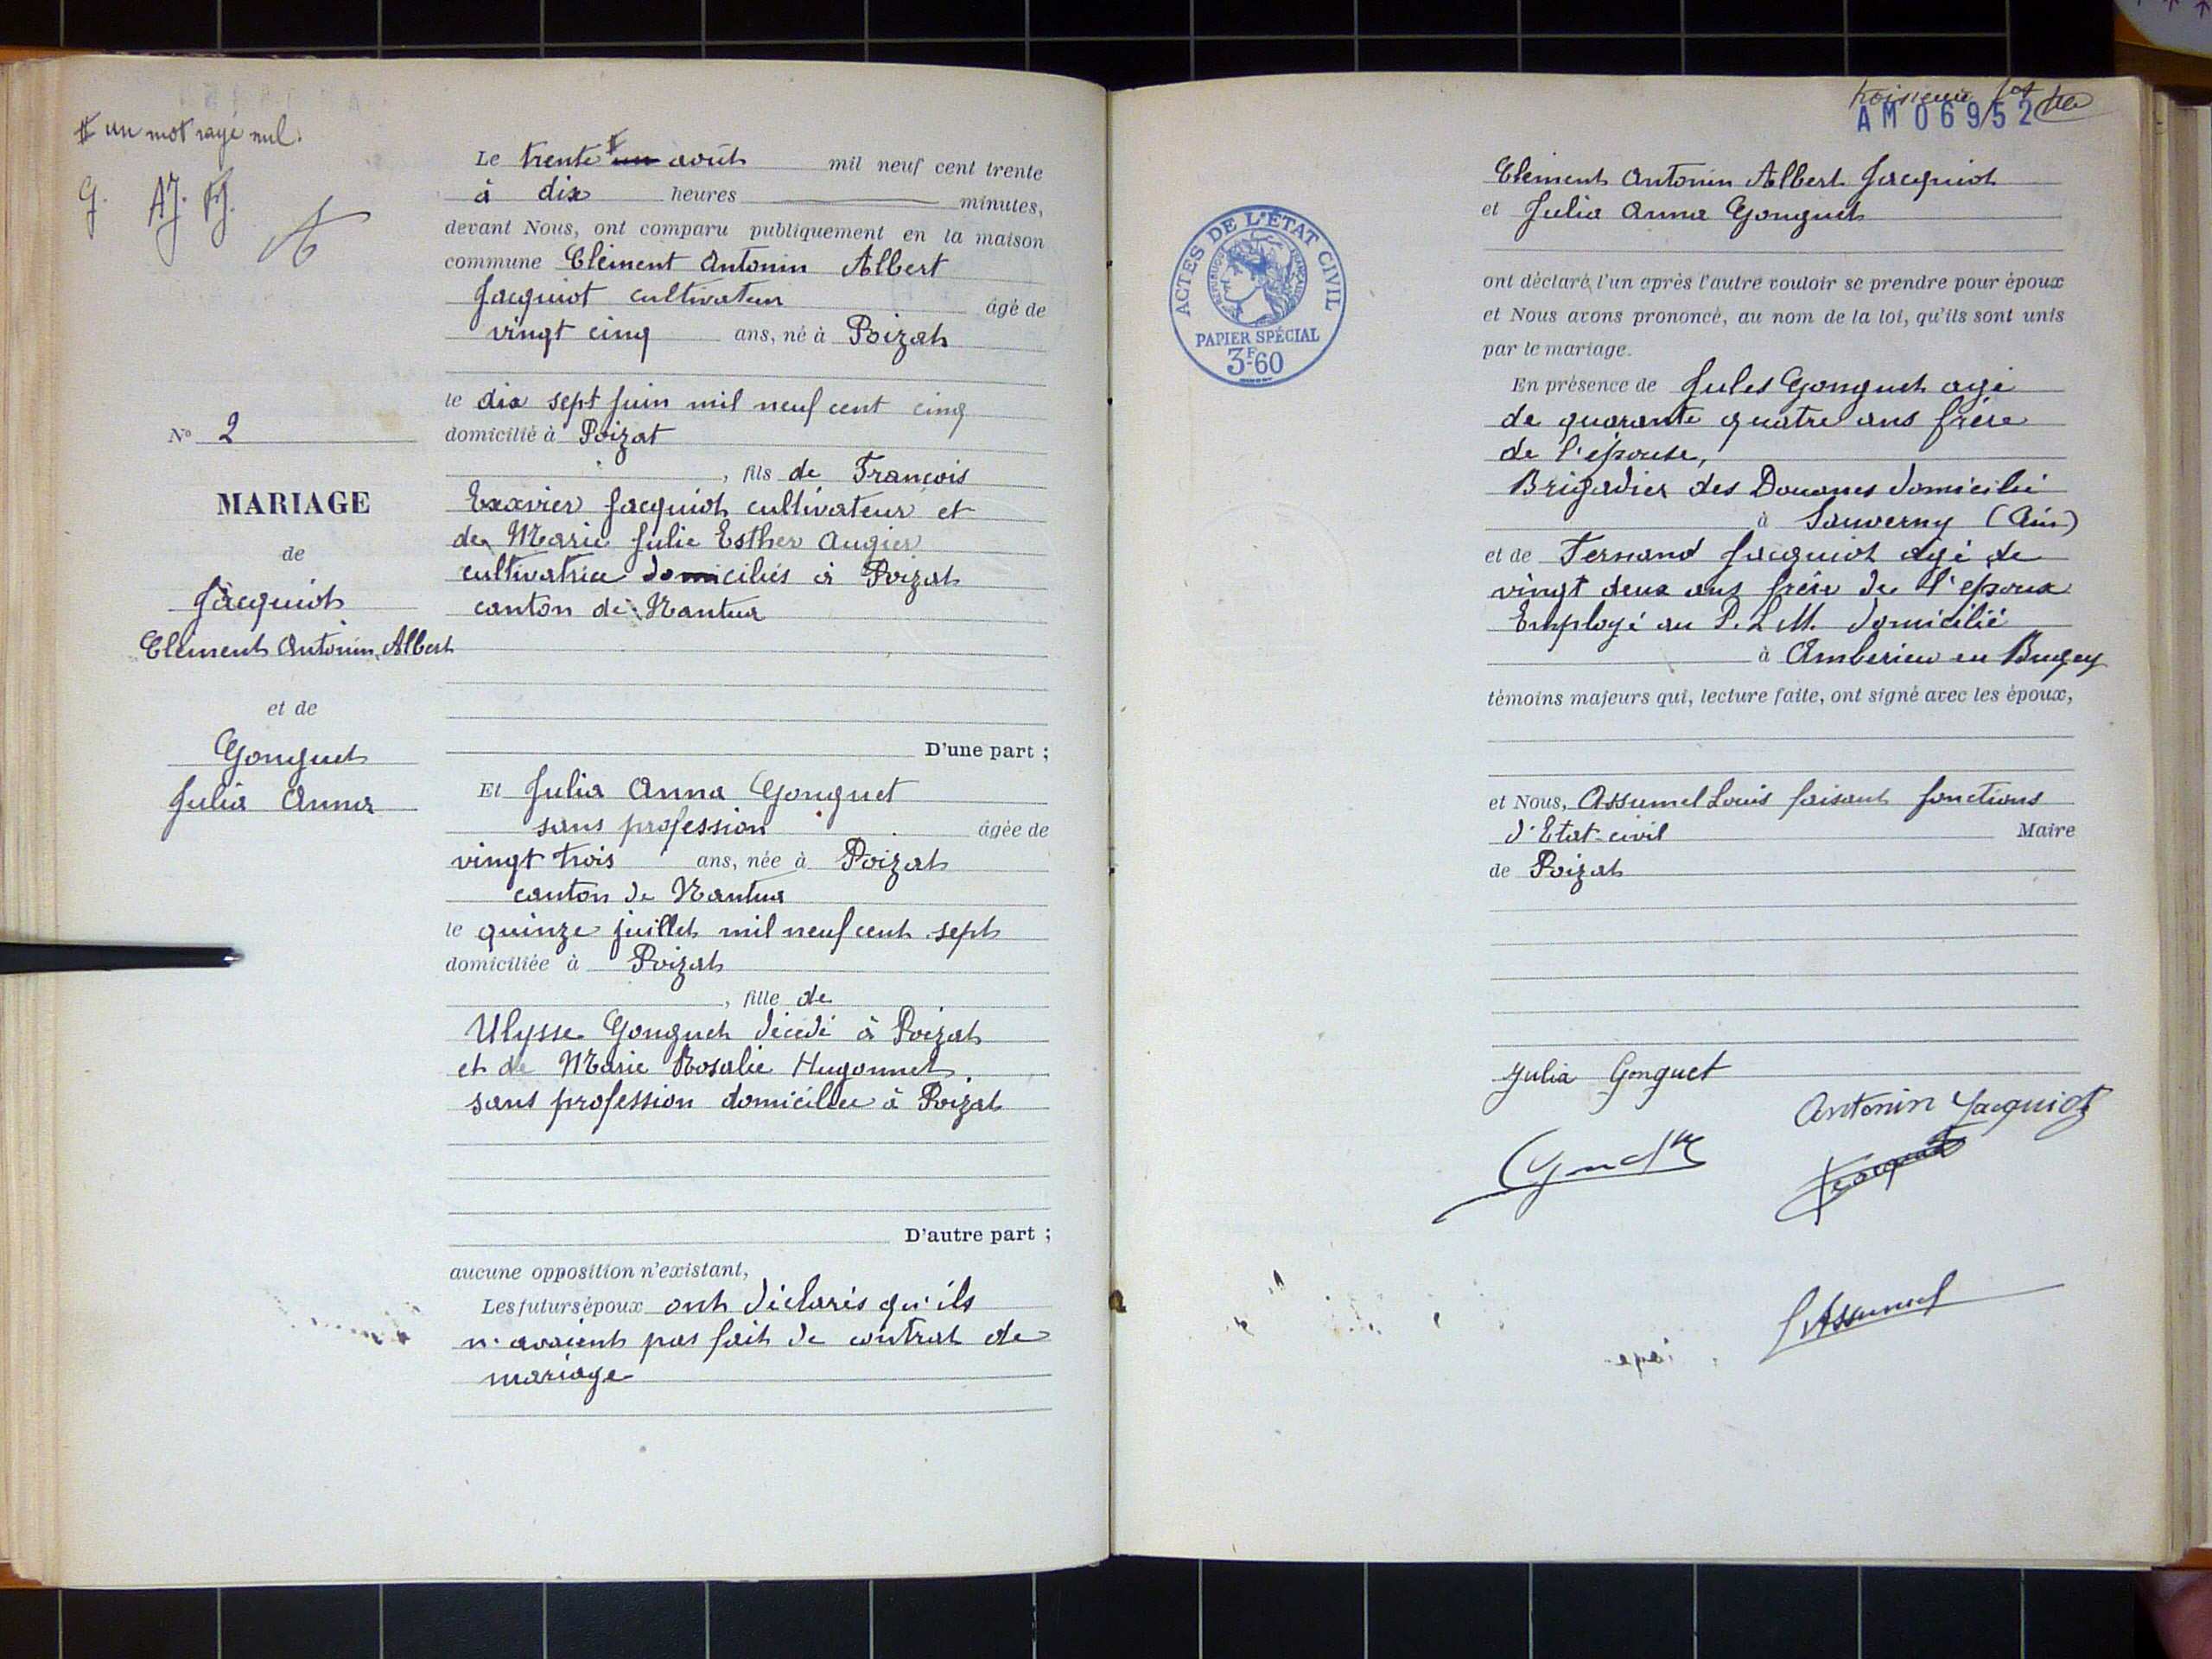 # un mot rayé nul.
G. AJ. FJ.
N° 2
MARIAGE
de
Jacquiot
Clément Antonin Albert
et de
Gonguet
Julia Anna
Le trente # un août mil neuf cent trente
à dix heures minutes,
devant Nous, ont comparu publiquement en la maison
commune Clément Antonin Albert
Jacquiot cultivateur âgé de
vingt cinq ans, né à Poizat
le dix sept juin mil neuf cent cinq
domicilié à Poizat
, fils de François
Exxvier Jacquiot cultivateur et
de Marie Julie Esther Augier
cultivatrice domiciliés à Poizat
canton de Nantua
D'une part ;
Et Julia Anna Gonguet
sans profession âgée de
vingt trois ans, née à Poizat
canton de Nantua
le quinze juillet mil neuf cent sept
domiciliée à Poizat
, fille de
Ulysse Gonguet décédé à Poizat
et de Marie Rosalie Hugonnet.
sans profession domiciliée à Poizat
D'autre part ;
aucune opposition n'existant,
Les futurs époux ont déclarés qu'ils
n'avaient pas fait de contrat de
mariage
troisième
AM 06952
ACTES DE L'ÉTAT CIVIL
RÉPUBLIQUE FRANÇAISE
PAPIER SPÉCIAL
3F60
Clément Antonin Albert Jacquiot
et Julia Anna Gonguet
ont déclaré l'un après l'autre vouloir se prendre pour époux
et Nous avons prononcé, au nom de la loi, qu'ils sont unis
par le mariage.
En présence de Jules Gonguet agé
de quarante quatre ans frère
de l'épouse,
Brigadier des Douanes domicilié
à Sauverny (Ain)
et de Fernand Jacquiot agé de
vingt deux ans frère de l'époux
Employé au P.L.M. domicilié
à Amberieu en Bugey
témoins majeurs qui, lecture faite, ont signé avec les époux,
et Nous, Assumel Louis faisant fonctions
d'Etat-civil Maire
de Poizat
Julia Gonguet
Antonin Jacquiot
Jacquiot
LAssumel